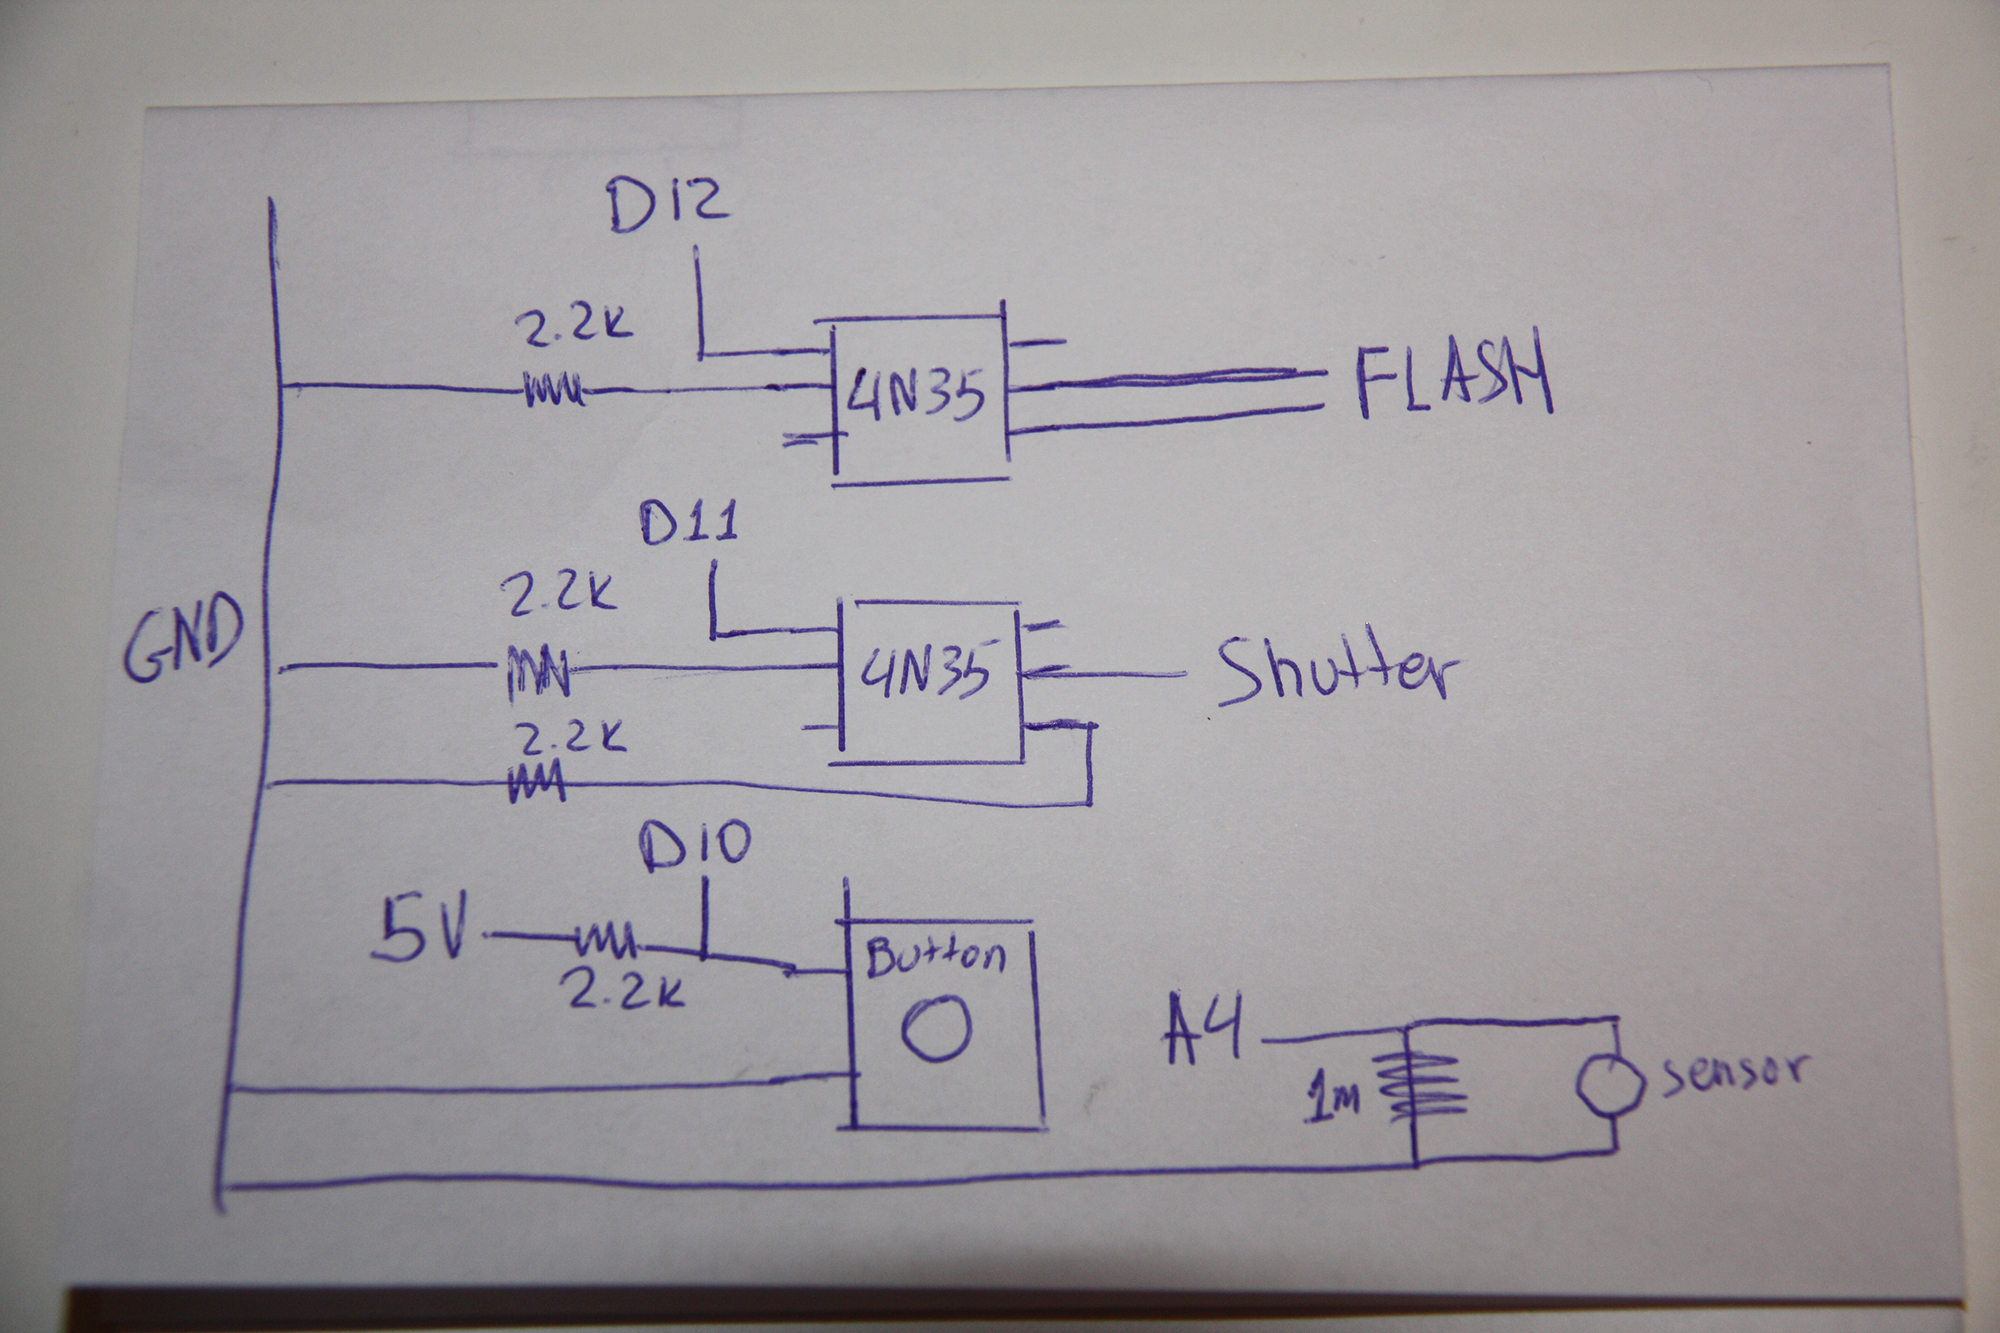 D12
2.2K
4N35
FLASH
D11
2.2K
GND
4N35
Shutter
2.2K
D10
5V
Button
2.2K
A4
1m
sensor